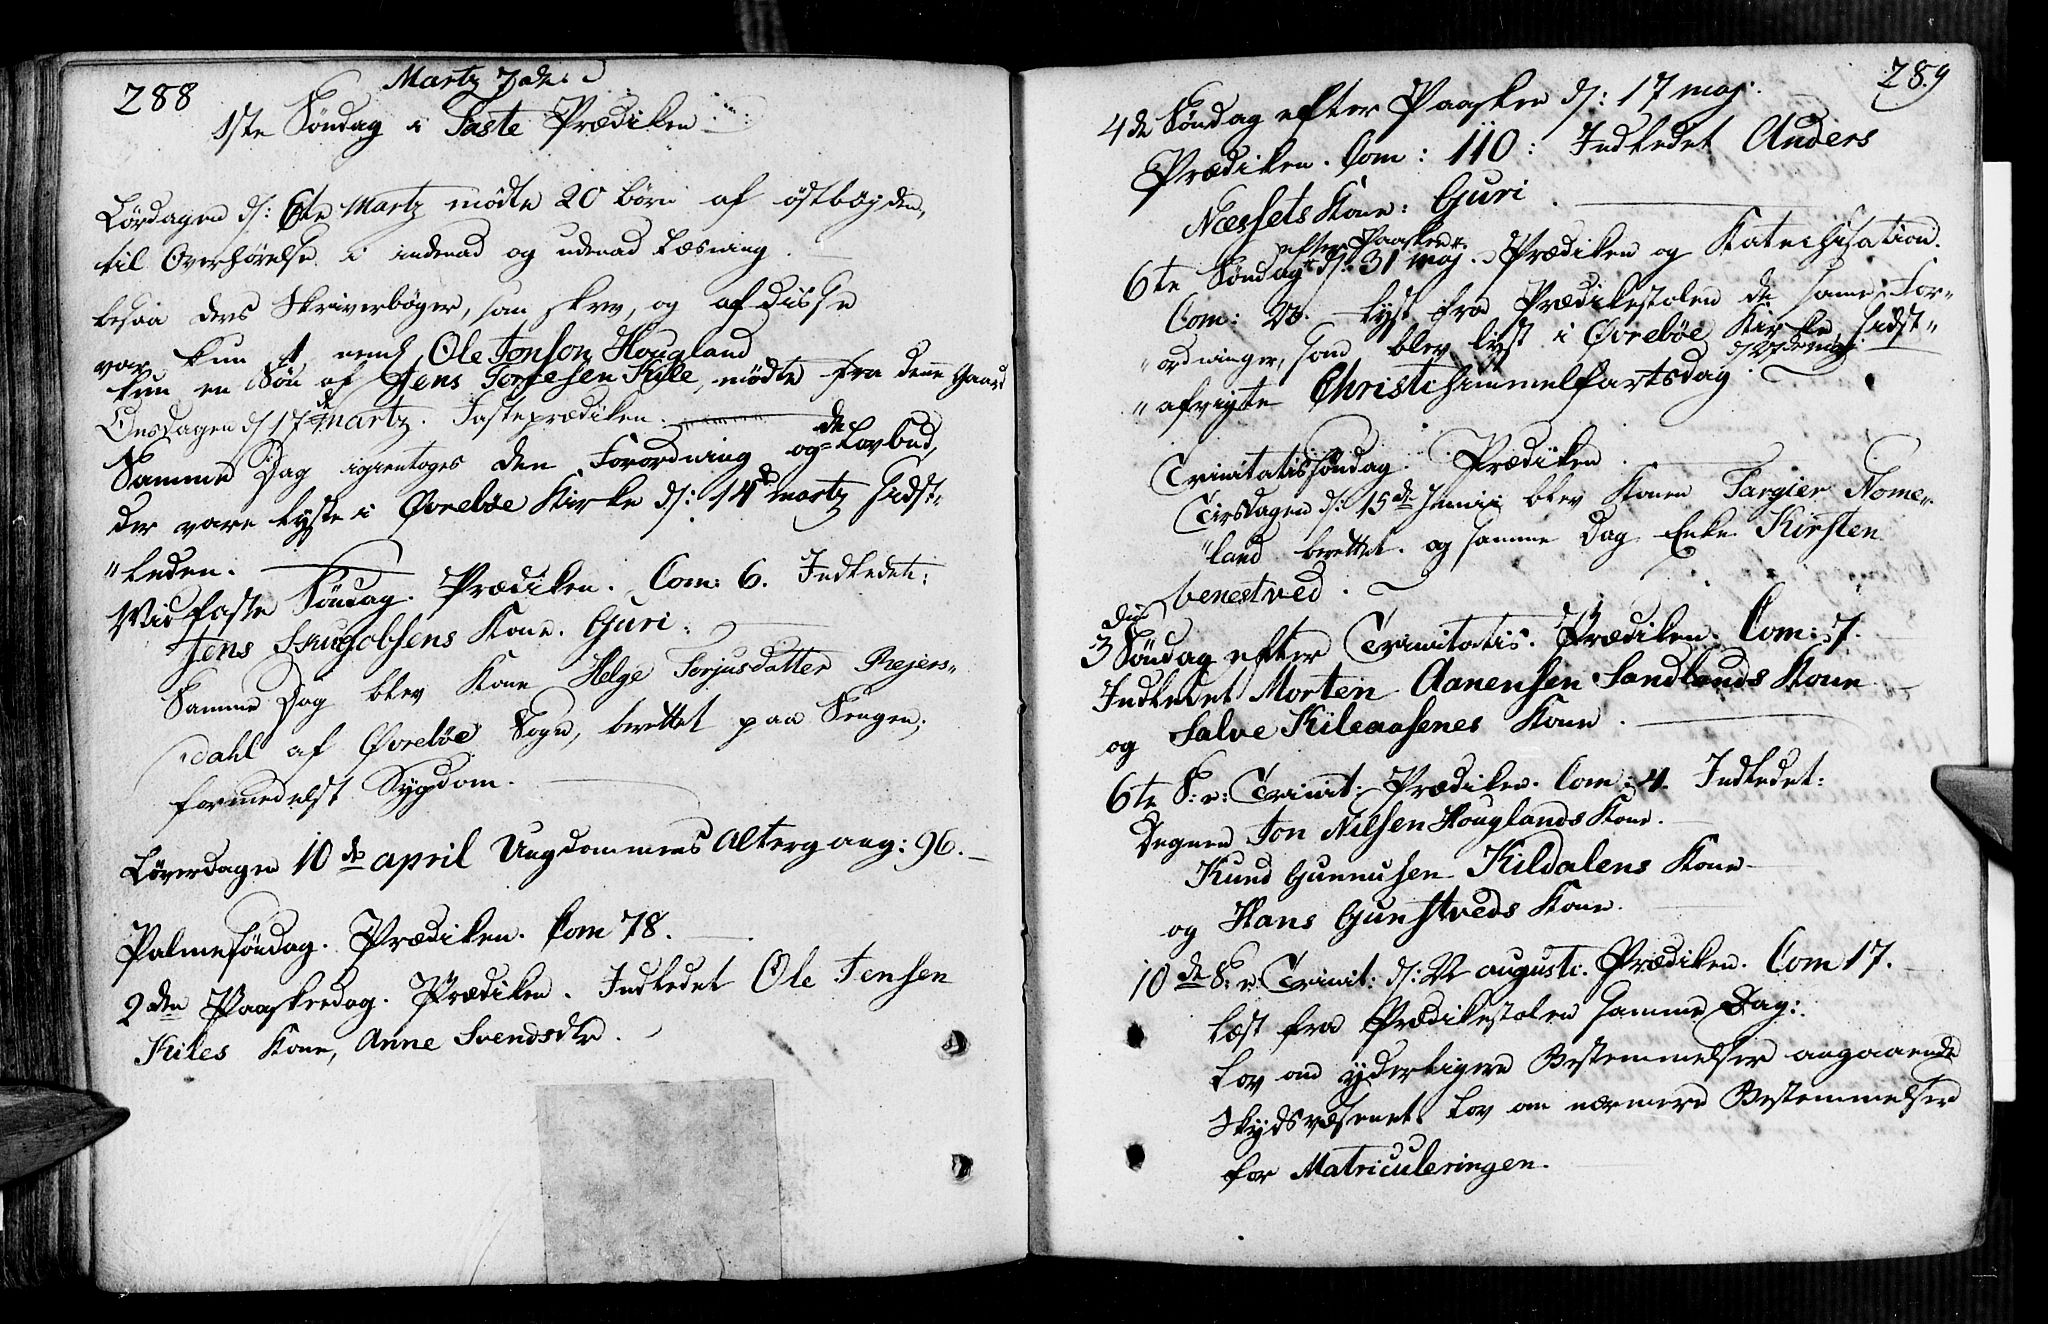 288
Martz 7de
1ste Søndag i Faste Prædiken
Løverdagen d: 6te Martz mødte 20 børn af østbøjden,
til Overhørelse i indenad og udenad Læsning.
besaa ders Skriverbøger, som skrev, og af disse
var kun 1 neml Ole Jonson Hougland
kun en Søn af Jens Torjesen Kile, mødte fra denne Gaard
Onsdagen d 17de Martz. Fasteprædiken.
Samme Dag igientoges den Forordning og de Lovbud,
der vare lyste i Øvrebøe Kirke d: 14de Martz sidst-
"leden.
Midfaste Søndag. Prædiken. Com: 6. Indledet:
Jens Kone. Guri.
Samme Dag blev Kone Helge Terjusdatter Rejers-
dahl af Øvrebøe Sogn, berettet paa Sengen,
formedelst Sygdom.
Løverdagen 10de april Ungdommens Altergang: 96.
Palmesøndag. Prædiken. Com 78.
2den Paaskedag. Prædiken. Indledet Ole Jensen
Kiles Kone, Anne Svendsdtr.
289
4de Søndag efter Paasken d: 17 maj.
Prædiken. Com: 110: Indledet Anders
Næssets Kone: Guri
efter Paasken
6te Søndag d: 31 maj. Prædiken og Katechisation.
Com: lyst fra Prædikestolen de samme For-
"ordninger, som blev lyst i Øvrebøe Kirke, sidst-
d 27de maj
"afvigte Christi himmelfartsdag
Trinitatissøndag. Prædiken.
Tirsdagen d: 15de Junii blev Konen Targier Nome-
"land berettet. og samme Dag Enke Kirsten
benestved.
3die Søndag efter Trinitatis. Prædiken. Com: 7.
Indledet Morten Aanensen Sandlands Kone
og Salve Kileaasenes Kone.
6te S: e: Trinit: Prædiken. Com: 4. Indledet:
Degnen Jon Nilsen Houglands Kone.
Knud Gunnusen Kildalens Kone
og Hans Gunstveds Kone.
10de S: e: Trinit: d: 22 augusti. Prædiken. Com 17.
Læst fra Prædikestolen samme Dag:
Lov om yderligere Bestemmelser angaaende
Skydsvæsenet. Lov om nærmere Bestemmelser
for Matriculeringen.